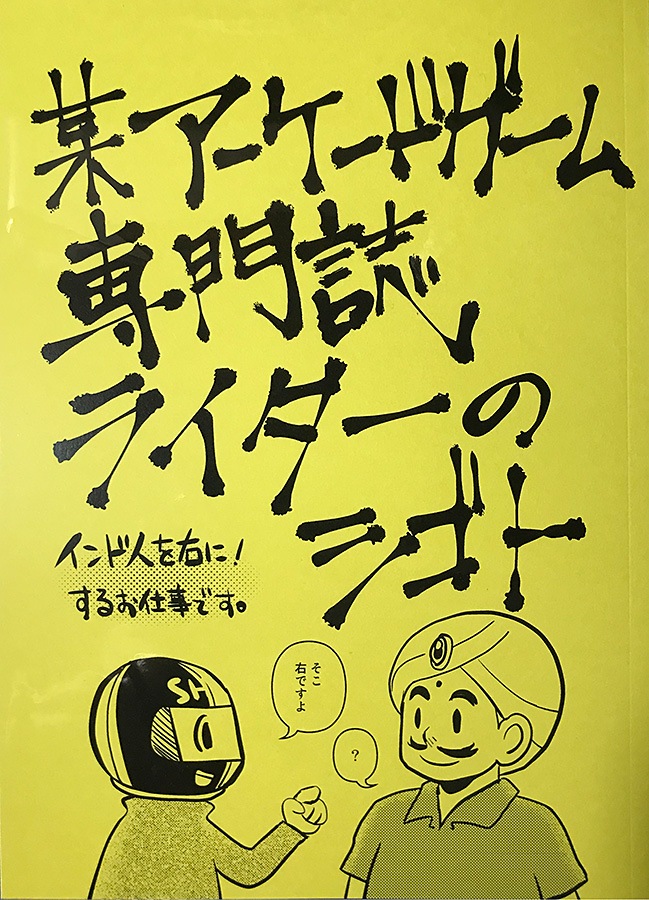 某アーケードゲーム
専門誌
ライターの
シゴト
インド人を右に!
するお仕事です。
SH
そこ
右ですよ
?